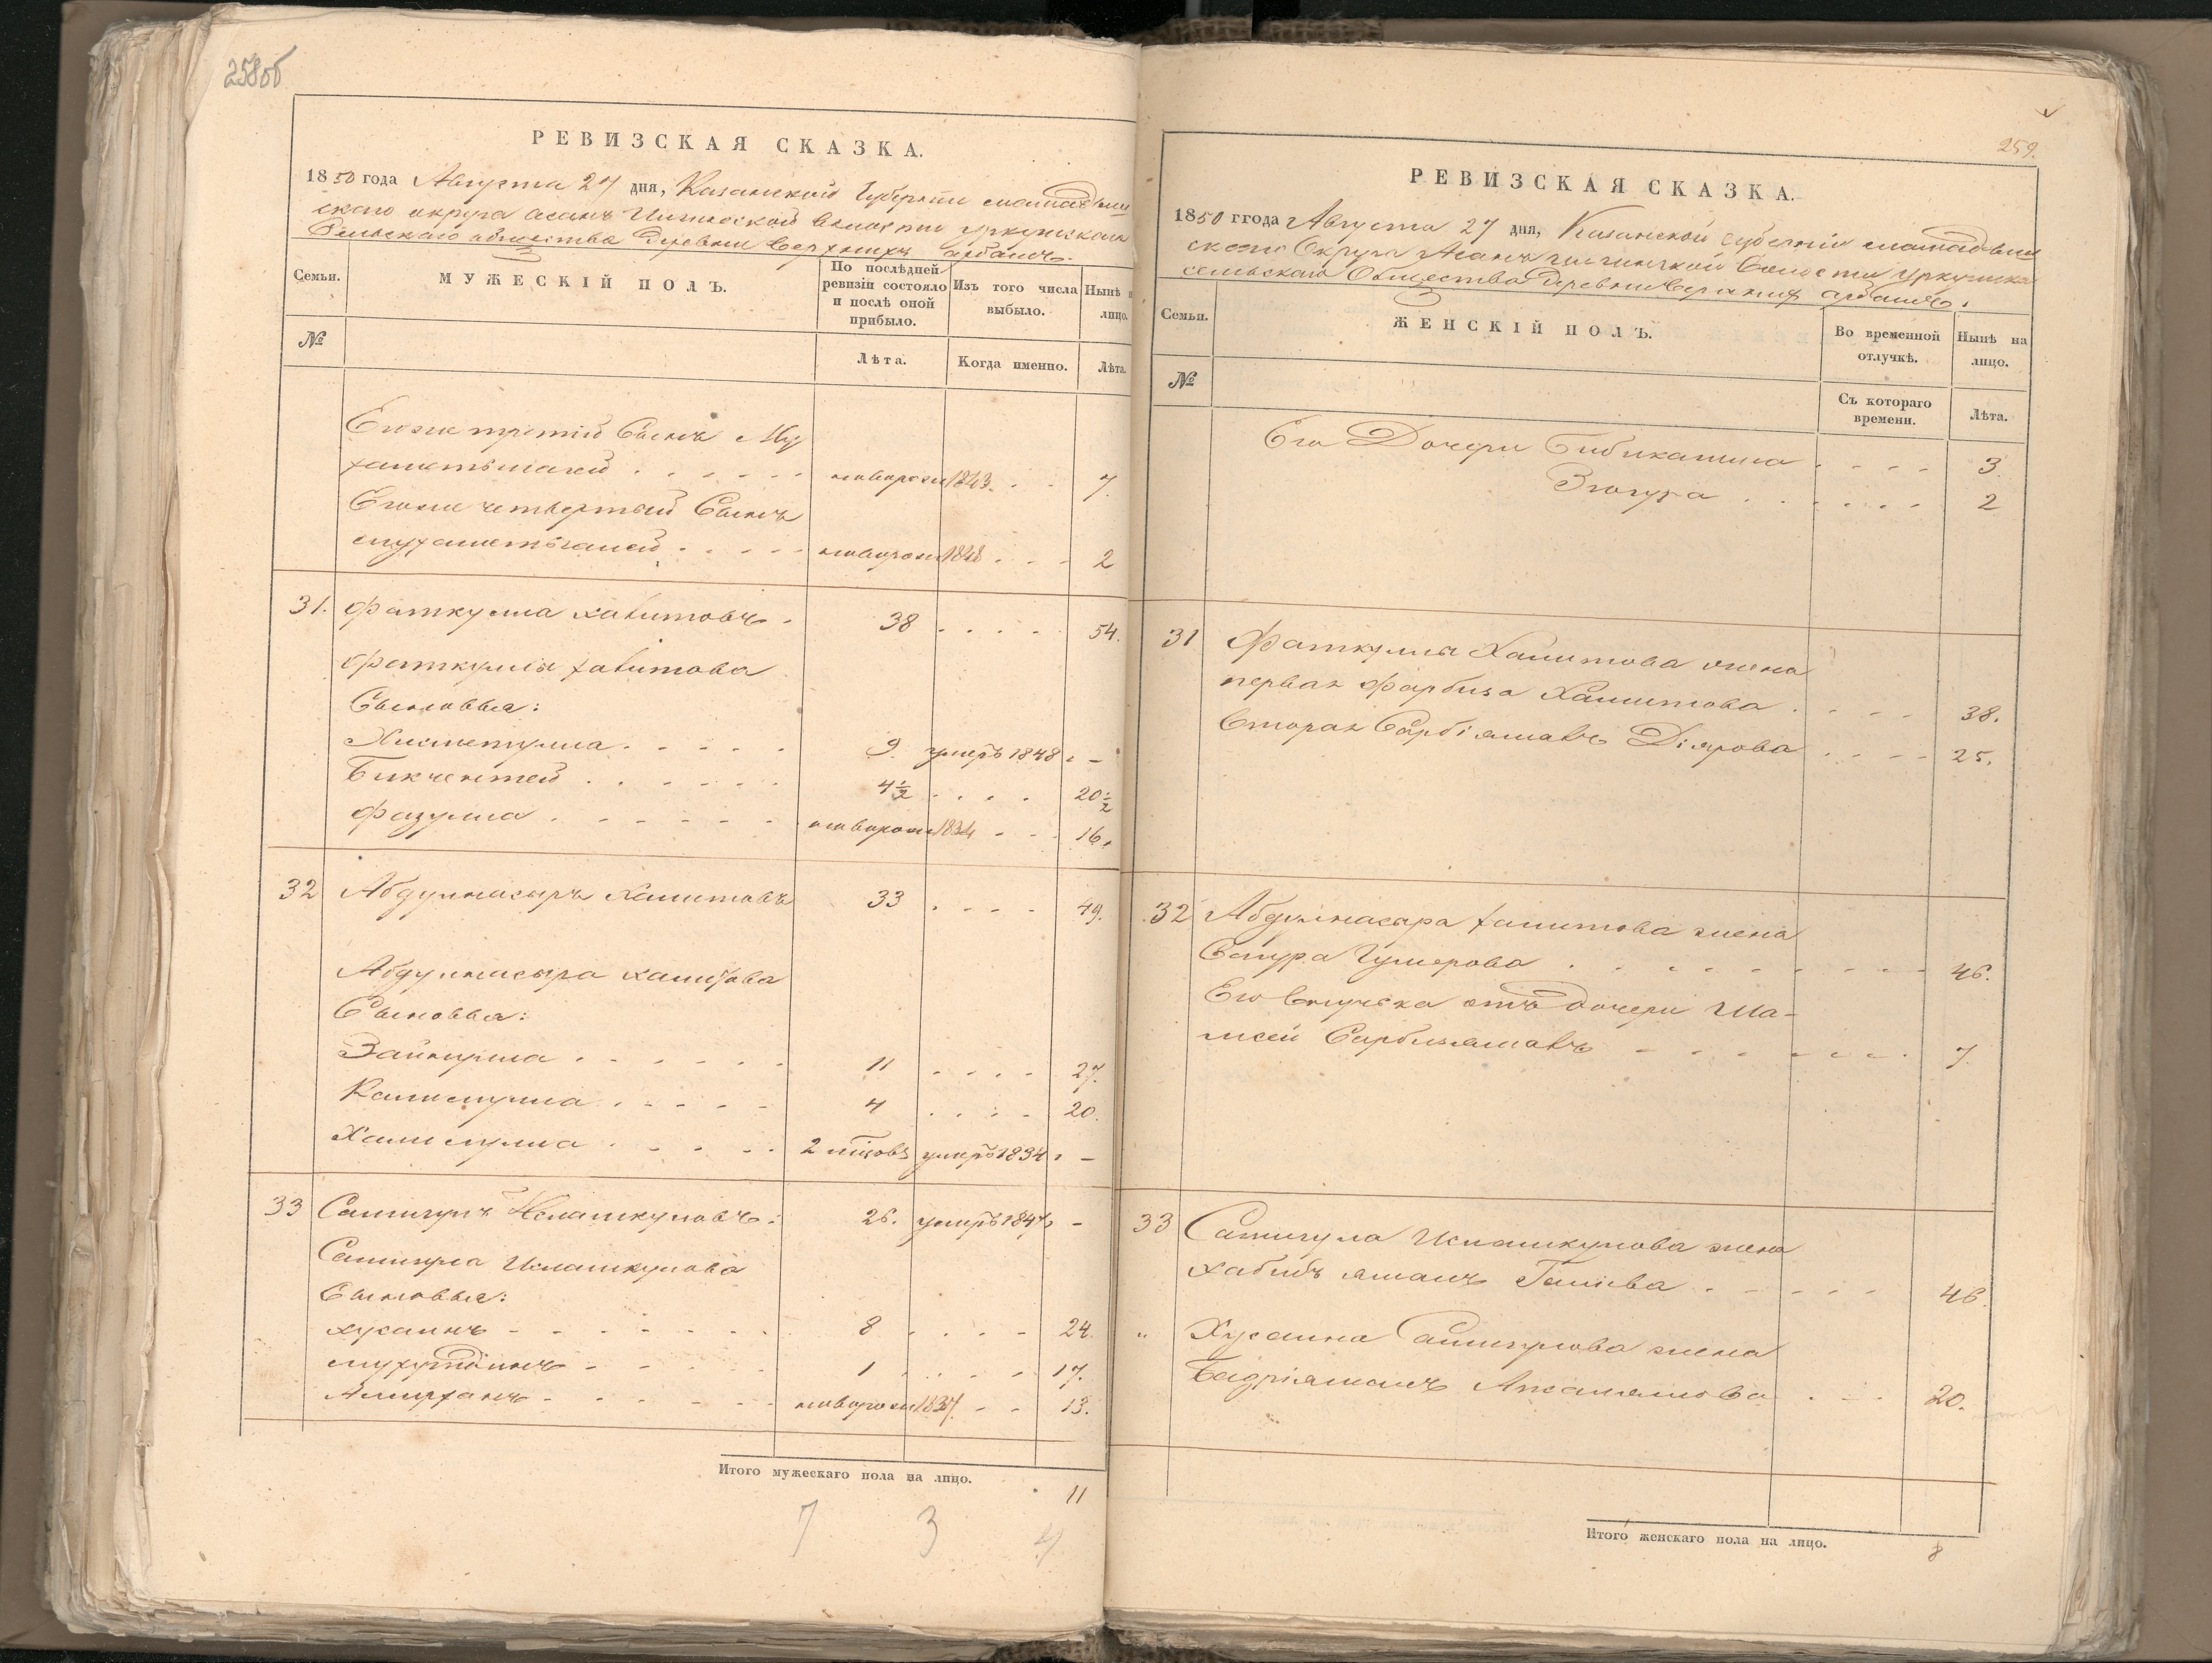 258об
РЕВИЗСКАЯ СКАЗКА.
1850 года Августа 27 дня, Казанской Губернии мамадыш
скаго округа асанъ Илгинской волости уркушскаго
Сельскаго общества Деревни Верхнихъ арбашъ.
Семьи.
МУЖЕСКІЙ ПОЛЪ.
По послѣдней ревизіи состояло и послѣ оной прибыло.
Изъ того числа выбыло.
Нынѣ на лицо.
№
Лѣта.
Когда именно.
Лѣта.
Егоже третій Сынъ Му
хаметьшагей новорожд 1843. 7.
Егоже четвертый Сынъ
мухаметьганей новорожд 1848 2
31. Фаткулла хамитовъ 38 54.
Фаткуллы хамитова
Сыновья:
Хисметулла 9. умеръ 1848 г –
Бикчентей 4½ 20½
Фазулла новорожд 1834 16.
32 Абдулнасыръ Хамитовъ 33 49.
Абдулнасыра хамитова
Сыновья:
Зайнулла 11 27.
Калимулла 4 20.
Халиулла 2 мѣсовъ умеръ 1834 г –
33 Самигулъ Исламкуловъ: 26. умеръ 1847 г –
Самигула Исламкулова
Сыновья:
хусаинъ 8 24.
мухутдинъ 1 17.
Амирханъ новорожд 1837 13.
Итого мужескаго пола на лицо.
11
7 3 4
259.
РЕВИЗСКАЯ СКАЗКА.
1850 ггода Августа 27 дня, Казанской губерніи мамадыш
скаго Округа Асанъ Илгинской Волости Уркушска
сельскаго Общества Деревни Верхнихъ арбашъ.
Семьи.
ЖЕНСКІЙ ПОЛЪ.
Во временной отлучкѣ.
Нынѣ на лицо.
№
Съ котораго времени.
Лѣта.
Его Дочери Бибикамила 3
Зюгура 2
31 Фаткуллы Хамитова жена
первая Фарбиза Хамитова 38.
Вторая Сарбіямалъ Діярова 25.
32 Абдулнасыра хамитова жена
Сагура Гумерова 46.
Его Внучька отъ дочери Ша-
мсей Сарбиямалъ 7.
33 Самигула Исламкулова жена
хабибъ ямалъ Галіева 46.
" Хусаина Самигулова жена
Бадріямалъ Апсалямова 20.
Итого женскаго пола на лицо.
8